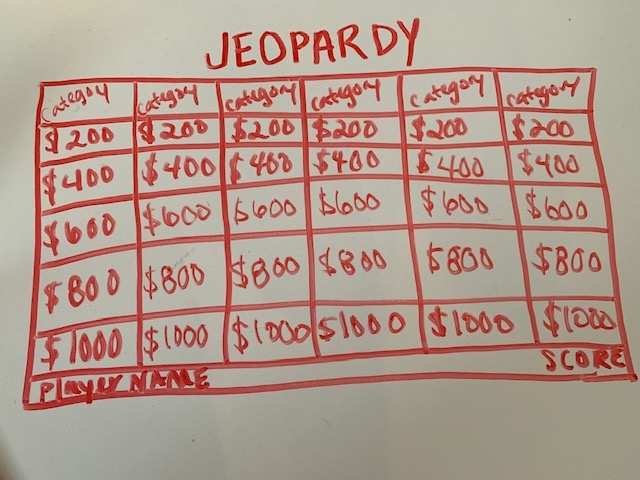 JEOPARDY
category category category category category category
$200 $200 $200 $200 $200 $200
$400 $400 $400 $400 $400 $400
$600 $600 $600 $600 $600 $600
$800 $800 $800 $800 $800 $800
$1000 $1000 $1000 $1000 $1000 $1000
Player NAME SCORE